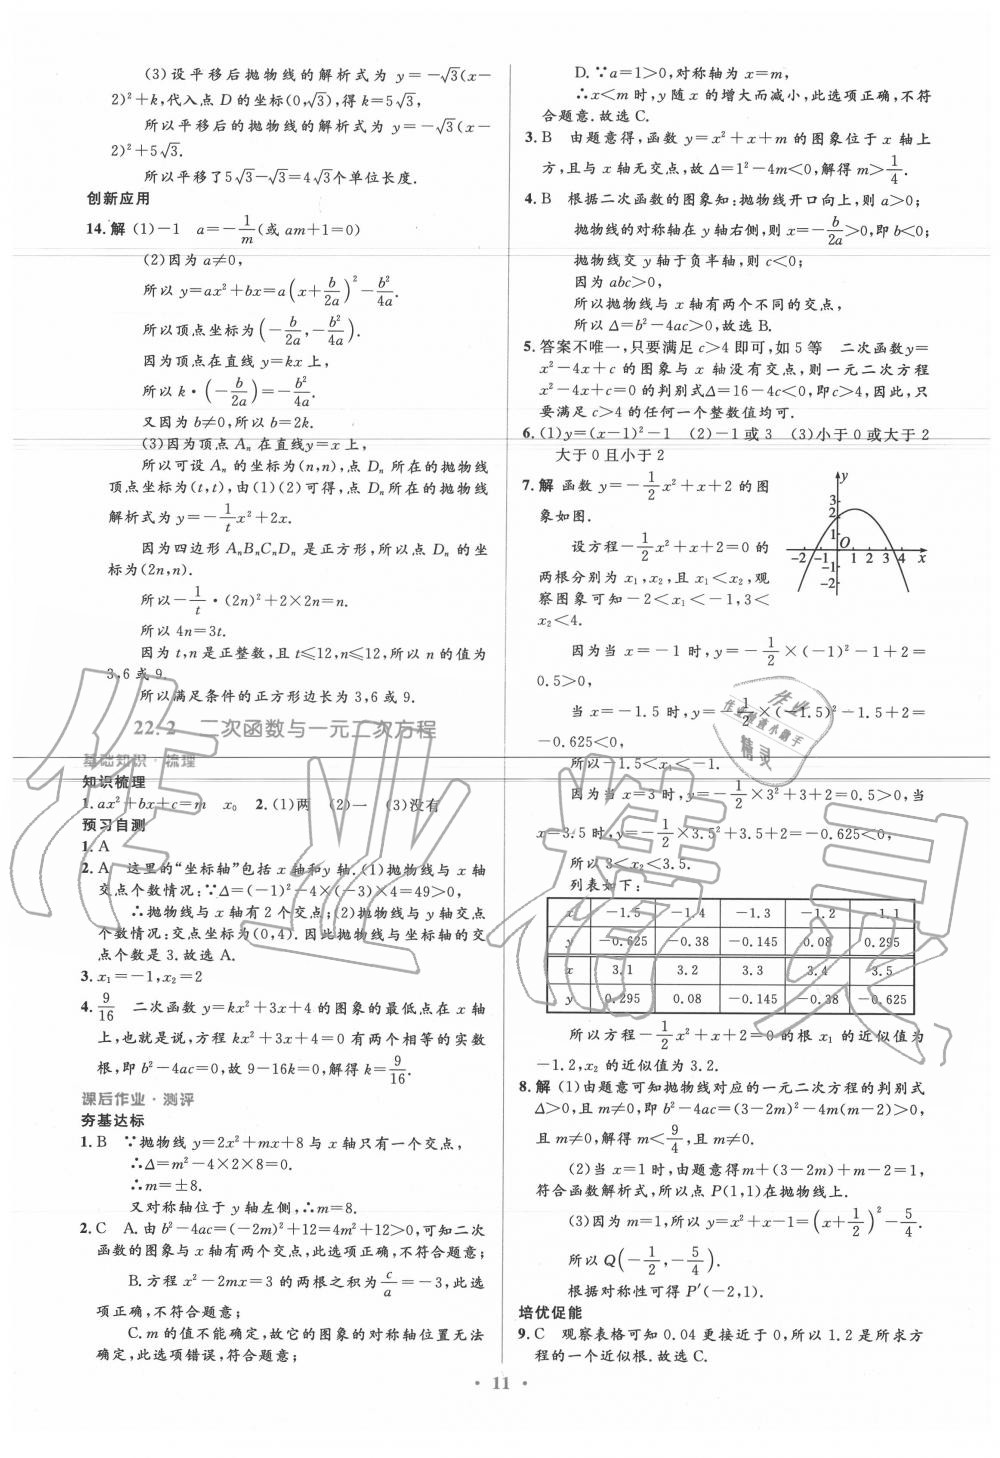 (3)设平移后抛物线的解析式为 y=-√3(x-
2)²+k,代入点 D 的坐标(0,√3),得 k=5√3,
所以平移后的抛物线的解析式为 y=-√3(x-
2)²+5√3.
所以平移了5√3-√3=4√3个单位长度.
创新应用
14.解 (1)-1 a=-1/m(或 am+1=0)
(2)因为 a≠0,
所以 y=ax²+bx=a(x+b/2a)²-b²/4a.
所以顶点坐标为(-b/2a,-b²/4a).
因为顶点在直线 y=kx 上,
所以 k·(-b/2a)=-b²/4a.
又因为 b≠0,所以 b=2k.
(3)因为顶点 Aₙ 在直线y=x 上,
所以可设 Aₙ 的坐标为(n,n),点 Dₙ 所在的抛物线
顶点坐标为(t,t),由(1)(2)可得,点 Dₙ 所在的抛物线
解析式为 y=-1/t x²+2x.
因为四边形 AₙBₙCₙDₙ 是正方形,所以点 Dₙ 的坐
标为(2n,n).
所以-1/t·(2n)²+2×2n=n.
所以 4n=3t.
因为 t,n 是正整数,且 t≤12,n≤12,所以 n 的值为
3,6 或 9.
所以满足条件的正方形边长为 3,6 或 9.
22.2 二次函数与一元二次方程
基础知识·梳理
知识梳理
1.ax²+bx+c=m x₀ 2.(1)两 (2)一 (3)没有
预习自测
1.A
2.A 这里的“坐标轴”包括 x 轴和y 轴.(1)抛物线与 x 轴
交点个数情况:∵Δ=(-1)²-4×(-3)×4=49>0,
∴抛物线与 x 轴有 2 个交点;(2)抛物线与 y 轴交点
个数情况:交点坐标为(0,4).因此抛物线与坐标轴的交
点个数是 3.故选 A.
3.x₁=-1,x₂=2
4.9/16 二次函数 y=kx²+3x+4 的图象的最低点在 x 轴
上,也就是说,方程 kx²+3x+4=0 有两个相等的实数
根,即 b²-4ac=0,故 9-16k=0,解得 k=9/16.
课后作业·测评
夯基达标
1.B ∵抛物线 y=2x²+mx+8 与 x 轴只有一个交点,
∴Δ=m²-4×2×8=0.
∴m=±8.
又对称轴位于 y 轴左侧,∴m=8.
2.C A.由 b²-4ac=(-2m)²+12=4m²+12>0,可知二次
函数的图象与 x 轴有两个交点,此选项正确,不符合题意;
B.方程 x²-2mx=3 的两根之积为c/a=-3,此选
项正确,不符合题意;
C.m 的值不能确定,故它的图象的对称轴位置无法
确定,此选项错误,符合题意;
D.∵a=1>0,对称轴为 x=m,
∴x<m 时,y 随 x 的增大而减小,此选项正确,不符
合题意.故选 C.
3.B 由题意得,函数 y=x²+x+m 的图象位于 x 轴上
方,且与 x 轴无交点,故 Δ=1²-4m<0,解得 m>1/4.
4.B 根据二次函数的图象知:抛物线开口向上,则 a>0;
抛物线的对称轴在 y 轴右侧,则 x=-b/2a>0,即 b<0;
抛物线交 y 轴于负半轴,则 c<0;
因为 abc>0,
所以抛物线与 x 轴有两个不同的交点,
所以 Δ=b²-4ac>0,故选 B.
5.答案不唯一,只要满足 c>4 即可,如 5 等 二次函数y=
x²-4x+c 的图象与 x 轴没有交点,则一元二次方程
x²-4x+c=0 的判别式Δ=16-4c<0,即c>4,因此,只
要满足 c>4 的任何一个整数值均可.
6.(1)y=(x-1)²-1 (2)-1 或 3 (3)小于 0 或大于 2
大于 0 且小于 2
7.解 函数 y=-1/2x²+x+2 的图
象如图.
设方程-1/2x²+x+2=0 的
两根分别为 x₁,x₂,且 x₁<x₂,观
察图象可知-2<x₁<-1,3<
x₂<4.
y
3
2
1
-2 -1 O 1 2 3 4 x
-1
-2
因为当 x=-1 时,y=-1/2×(-1)²-1+2=
0.5>0,
当 x=-1.5 时,y=-1/2×(-1.5)²-1.5+2=
-0.625<0,
所以-1.5<x₁<-1.
因为当 x=3 时,y=-1/2×3²+3+2=0.5>0,当
x=3.5 时,y=-1/2×3.5²+3.5+2=-0.625<0,
所以 3<x₂<3.5.
列表如下:
x -1.5 -1.4 -1.3 -1.2 -1.1
y -0.625 -0.38 -0.145 0.08 0.295
x 3.1 3.2 3.3 3.4 3.5
y 0.295 0.08 -0.145 -0.38 -0.625
所以方程-1/2x²+x+2=0 的根 x₁ 的近似值为
-1.2,x₂ 的近似值为 3.2.
8.解 (1)由题意可知抛物线对应的一元二次方程的判别式
Δ>0,且 m≠0,即 b²-4ac=(3-2m)²-4m(m-2)>0,
且 m≠0,解得 m<9/4,且 m≠0.
(2)当 x=1 时,由题意得m+(3-2m)+m-2=1,
符合函数解析式,所以点 P(1,1)在抛物线上.
(3)因为 m=1,所以 y=x²+x-1=(x+1/2)²-5/4.
所以 Q(-1/2,-5/4).
根据对称性可得 P′(-2,1).
培优促能
9.C 观察表格可知 0.04 更接近于 0,所以 1.2 是所求方
程的一个近似根.故选 C.
· 11 ·
作业精灵